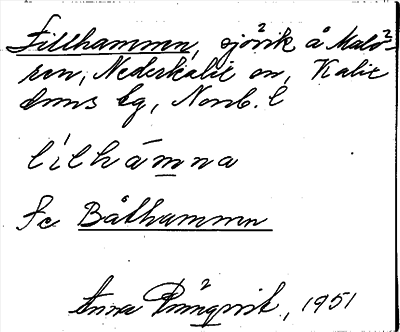 Lillhamnen, sjövik å Malö-
ren, Nederkalix sn, Kalix
dnns tg, Norrb. l
lílhámna
Se Båthamnen
Anna Rönnqvist, 1951